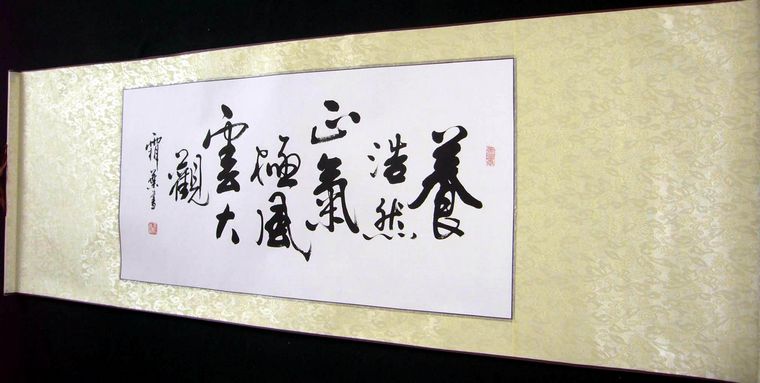 養
浩然
正氣
極風
雲大
觀
霜葉書